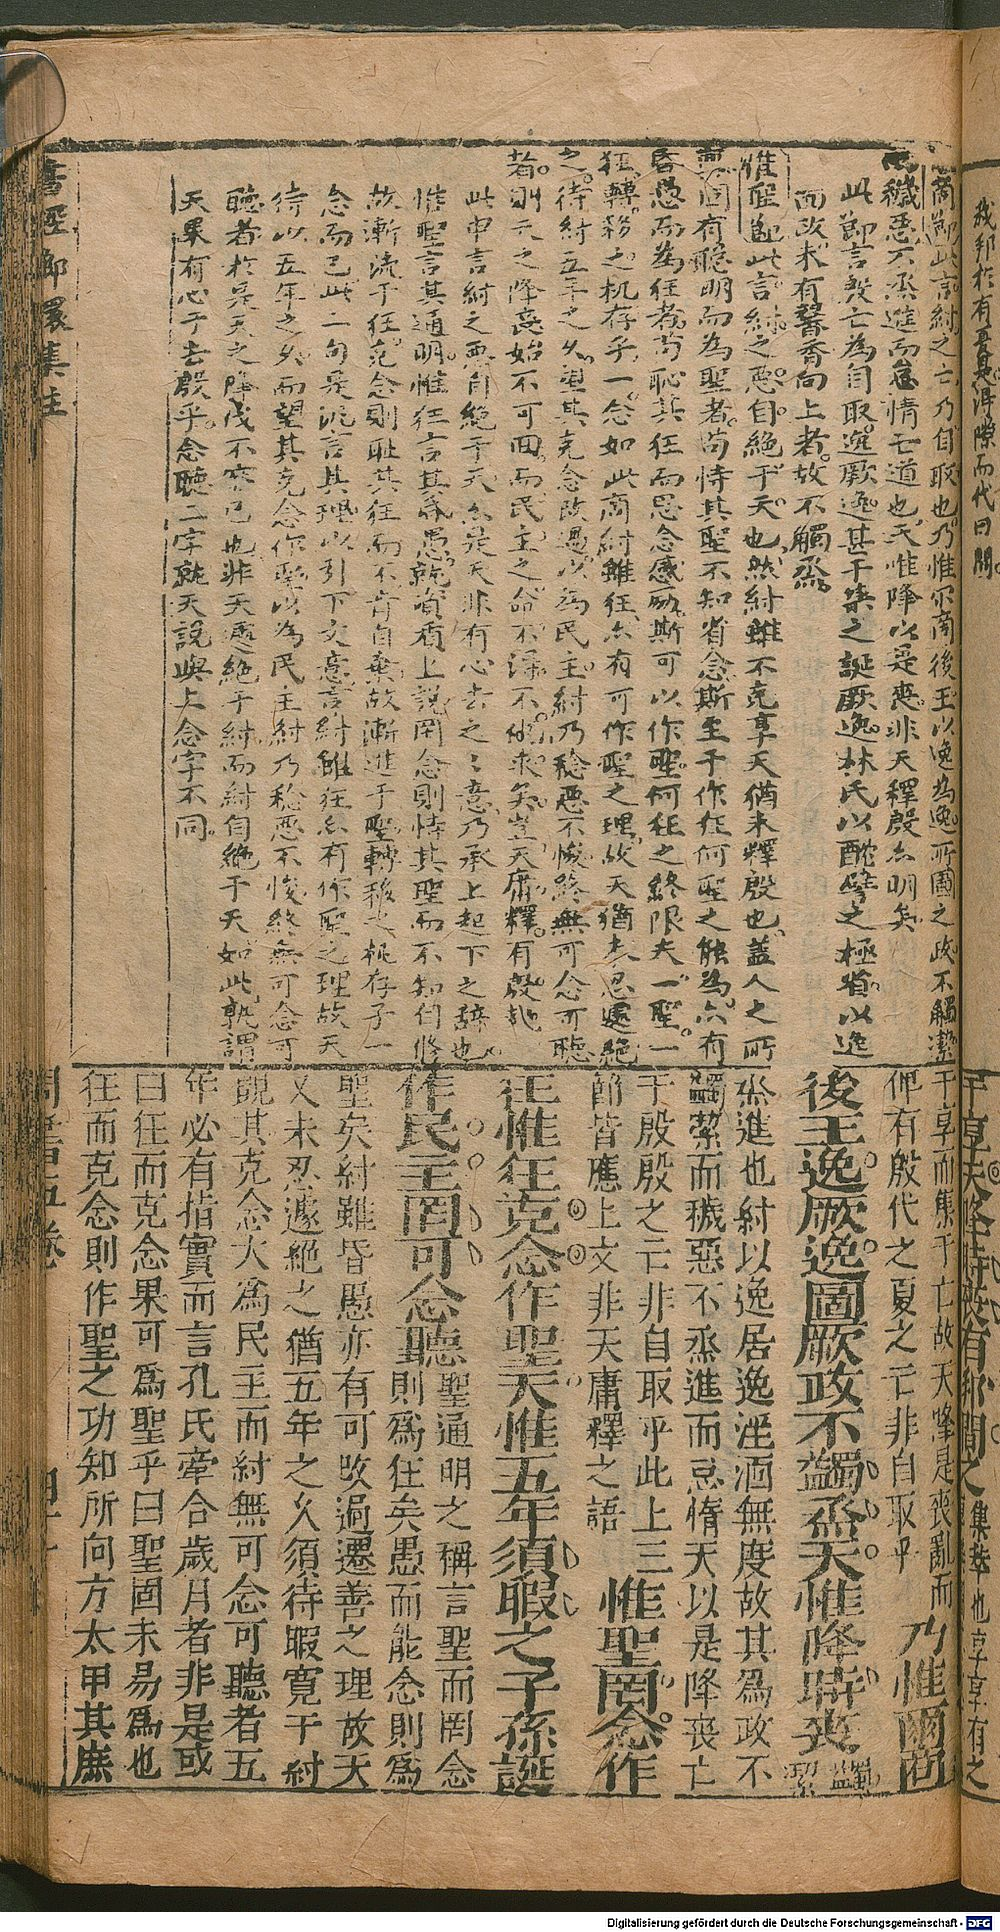 我邦於有夏是洱隙而代曰間
商節此言紂之亡乃自取也乃惟尔商後王以逸為逸所圖之政不蠲潔
而穢惡不烝進而怠惰亡道也天惟降以是喪非天釋殷亦明矣
此節言殷亡為自取逸厥逸甚于桀之誕厥逸林氏以酣
面政未有馨香向上者故不蠲烝
惟聖節此言紂之惡自絕于天也然紂雖不克享天猶未釋殷也蓋人之所
固有聰明而為聖者苟恃其聖不知省念斯至于作狂何聖之能為亦有
昏愚而為狂者苟恥其狂而思念感勵斯可以作聖何狂之終限夫一聖一
狂轉移之机存乎一念如此商紂雖狂亦有可作聖之理故天猶未忍遽絕
之待紂五年之久望其克念改過以為民主紂乃稔惡不悛終無可念可聽
者則天之降喪始不可回而民主之命不
此申言紂之惡自絕于天亦是天非有心去之之意乃承上起下之辞也
惟聖言其通明惟狂言其昏愚就資質上說罔念則恃其聖而不知自修
故漸流于狂克念則耻其狂而不肯自棄故漸進于聖轉移之机存乎一
念而已此二句是泛言其理以引下文意言紂雖狂亦有作聖之理故天
待以五年之久而望其克念作聖以為民主紂乃稔惡不悛終無可念可
聽者於是天之降戊不容已也非天遽絕于紂而紂自絕于天如此孰謂
天果有心于去殷乎念聽二字就天說與上念字不同
書經郎環集註
于享天降時喪有邦間之集萃也享享有之
于享而集于亡故天降是喪亂而
俾有殷代之夏之亡非自取乎 乃惟爾商
後王逸厥逸圖厥政不蠲烝天惟降時喪蠲潔
烝進也紂以逸居逸淫湎無度故其為政不
蠲潔而穢惡不烝進而怠惰天以是降喪亡
于殷殷之亡非自取乎此上三
節皆應上文非天庸釋之語 惟聖罔念作
狂惟狂克念作聖天惟五年須暇之子孫誕
作民主罔可念聽聖通明之稱言聖而罔念
則為狂矣愚而能念則為
聖矣紂雖昏愚亦有可改過遷善之理故天
又未忍遽絕之猶五年之久須待暇寬于紂
覬其克念大為民主而紂無可念可聽者五
年必有指實而言孔氏牽合歲月者非是或
曰狂而克念果可為聖乎曰聖固未易為也
狂而克念則作聖之功知所向方太甲其庶
周書五卷
Digitalisierung gefördert durch die Deutsche Forschungsgemeinschaft - DFG